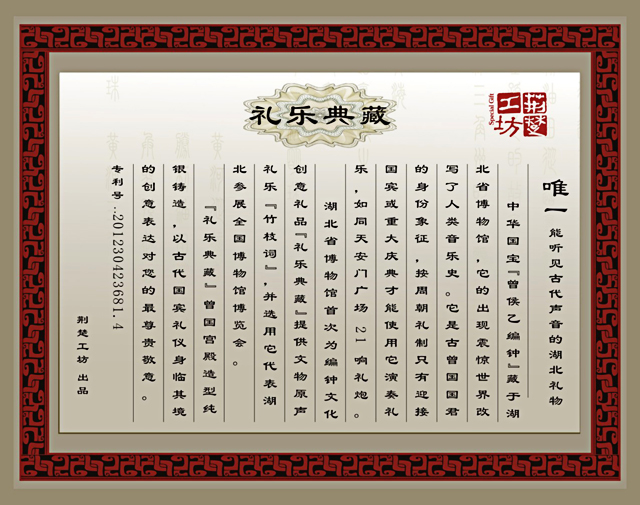 礼乐典藏
荆楚
工坊
Special Gift
唯一能听见古代声音的湖北礼物
中华国宝『曾侯乙编钟』藏于湖
北省博物馆，它的出现震惊世界改
写了人类音乐史。它是古曾国国君
的身份象征，按周朝礼制只有迎接
国宾或重大庆典才能使用它演奏礼
乐，如同天安门广场21响礼炮。
湖北省博物馆首次为编钟文化
创意礼品『礼乐典藏』提供文物原声
礼乐『竹枝词』，并选用它代表湖
北参展全国博物馆博览会。
『礼乐典藏』曾国宫殿造型纯
银铸造，以古代国宾礼仪身临其境
的创意表达对您的最尊贵敬意。
专利号：201230423681.4
荆楚工坊 出品